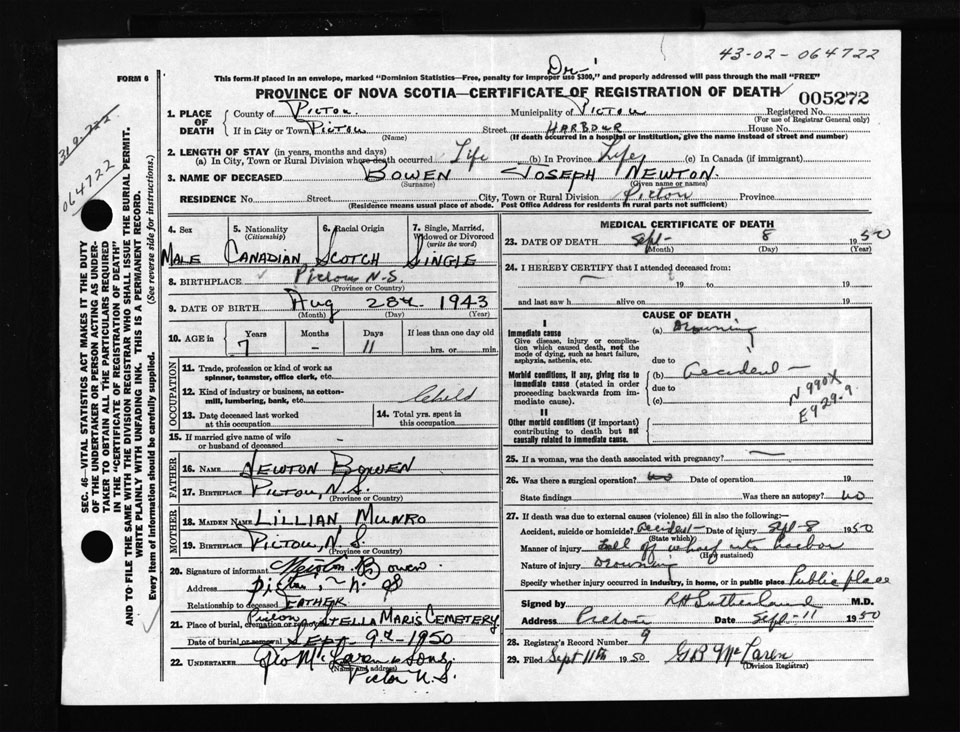 43-02-064722
Dr-1
FORM 6
This form if placed in an envelope, marked "Dominion Statistics—Free, penalty for improper use $300," and properly addressed will pass through the mail "FREE"
PROVINCE OF NOVA SCOTIA—CERTIFICATE OF REGISTRATION OF DEATH
005272
319-222
064722
SEC. 46—VITAL STATISTICS ACT MAKES IT THE DUTY OF THE UNDERTAKER OR PERSON ACTING AS UNDERTAKER TO OBTAIN ALL THE PARTICULARS REQUIRED IN THE "CERTIFICATE OF REGISTRATION OF DEATH" AND TO FILE THE SAME WITH THE DIVISION REGISTRAR WHO SHALL ISSUE THE BURIAL PERMIT.
WRITE PLAINLY WITH UNFADING INK. THIS IS A PERMANENT RECORD.
Every item of information should be carefully supplied. (See reverse side for instructions.)
1. PLACE OF DEATH
County of Pictou Municipality of Pictou Registered No.
(For use of Registrar General only)
If in City or Town Pictou Street HARBOUR House No.
(Name) (If death occurred in a hospital or institution, give the name instead of street and number)
2. LENGTH OF STAY (in years, months and days)
(a) In City, Town or Rural Division where death occurred Life (b) In Province Life (c) In Canada (if immigrant)
3. NAME OF DECEASED BOWEN JOSEPH NEWTON
(Surname) (Given name or names)
RESIDENCE No. Street City, Town or Rural Division Pictou Province
(Residence means usual place of abode. Post Office Address for residents in rural parts not sufficient)
4. Sex 5. Nationality (Citizenship) 6. Racial Origin 7. Single, Married, Widowed or Divorced (write the word)
MALE CANADIAN SCOTCH SINGLE
8. BIRTHPLACE Pictou N.S.
(Province or Country)
9. DATE OF BIRTH Aug 28th 1943
(Month) (Day) (Year)
10. AGE in Years Months Days If less than one day old
7 – 11 hrs. or min.
OCCUPATION
11. Trade, profession or kind of work as spinner, teamster, office clerk, etc.
12. Kind of industry or business, as cotton-mill, lumbering, bank, etc. Child
13. Date deceased last worked at this occupation
14. Total yrs. spent in this occupation
15. If married give name of wife or husband of deceased –
FATHER
16. NAME NEWTON BOWEN
17. BIRTHPLACE PICTOU, N.S.
(Province or Country)
MOTHER
18. MAIDEN NAME LILLIAN MUNRO
19. BIRTHPLACE PICTOU, N.S.
(Province or Country)
20. Signature of informant Newton Bowen
Address Pictou, N. S
Relationship to deceased FATHER
21. Place of burial, cremation or removal Pictou STELLA MARIS CEMETERY
Date of burial or removal SEPT 9th 1950
22. UNDERTAKER Geo McLaren & Sons
(Name and address)
Pictou N.S.
MEDICAL CERTIFICATE OF DEATH
23. DATE OF DEATH Sept- 8 1950
(Month) (Day) (Year)
24. I HEREBY CERTIFY that I attended deceased from:
– 19 to 19
and last saw h alive on 19
CAUSE OF DEATH
I
Immediate cause
Give disease, injury or complication which caused death, not the mode of dying, such as heart failure, asphyxia, asthenia, etc.
(a) Drowning
due to
Morbid conditions, if any, giving rise to immediate cause (stated in order proceeding backwards from immediate cause).
(b) accident –
due to
(c)
N 990X
E929.9
II
Other morbid conditions (if important) contributing to death but not causally related to immediate cause.
25. If a woman, was the death associated with pregnancy? –
26. Was there a surgical operation? no Date of operation 19
State findings Was there an autopsy? no
27. If death was due to external causes (violence) fill in also the following:–
Accident, suicide or homicide? accident- Date of injury Sept-8 1950
(State which)
Manner of injury Fall off wharf into harbor
(How sustained)
Nature of injury Drowning
Specify whether injury occurred in industry, in home, or in public place Public place
Signed by RH Sutherland M.D.
Address Pictou Date Sept-11 1950
28. Registrar's Record Number 9
29. Filed Sept 11th 1950 GB McLaren
(Division Registrar)